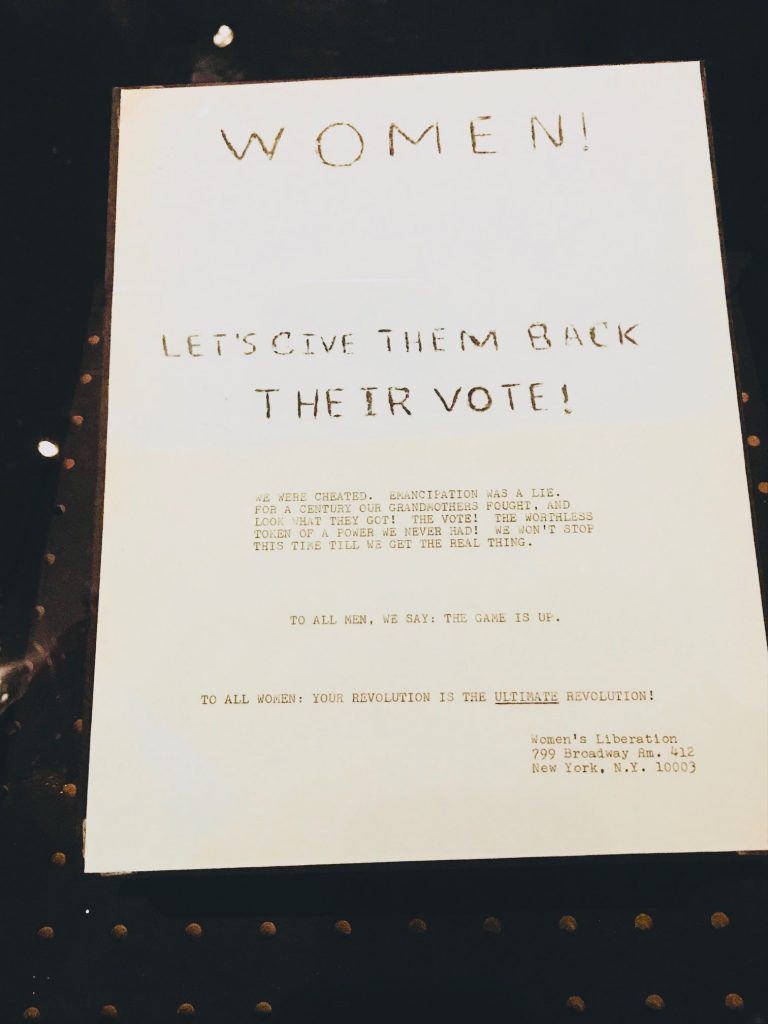 WOMEN!
LET'S GIVE THEM BACK
THEIR VOTE!
WE WERE CHEATED. EMANCIPATION WAS A LIE.
FOR A CENTURY OUR GRANDMOTHERS FOUGHT, AND
LOOK WHAT THEY GOT! THE VOTE! THE WORTHLESS
TOKEN OF A POWER WE NEVER HAD! WE WON'T STOP
THIS TIME TILL WE GET THE REAL THING.
TO ALL MEN, WE SAY: THE GAME IS UP.
TO ALL WOMEN: YOUR REVOLUTION IS THE ULTIMATE REVOLUTION!
Women's Liberation
799 Broadway Rm. 412
New York, N.Y. 10003